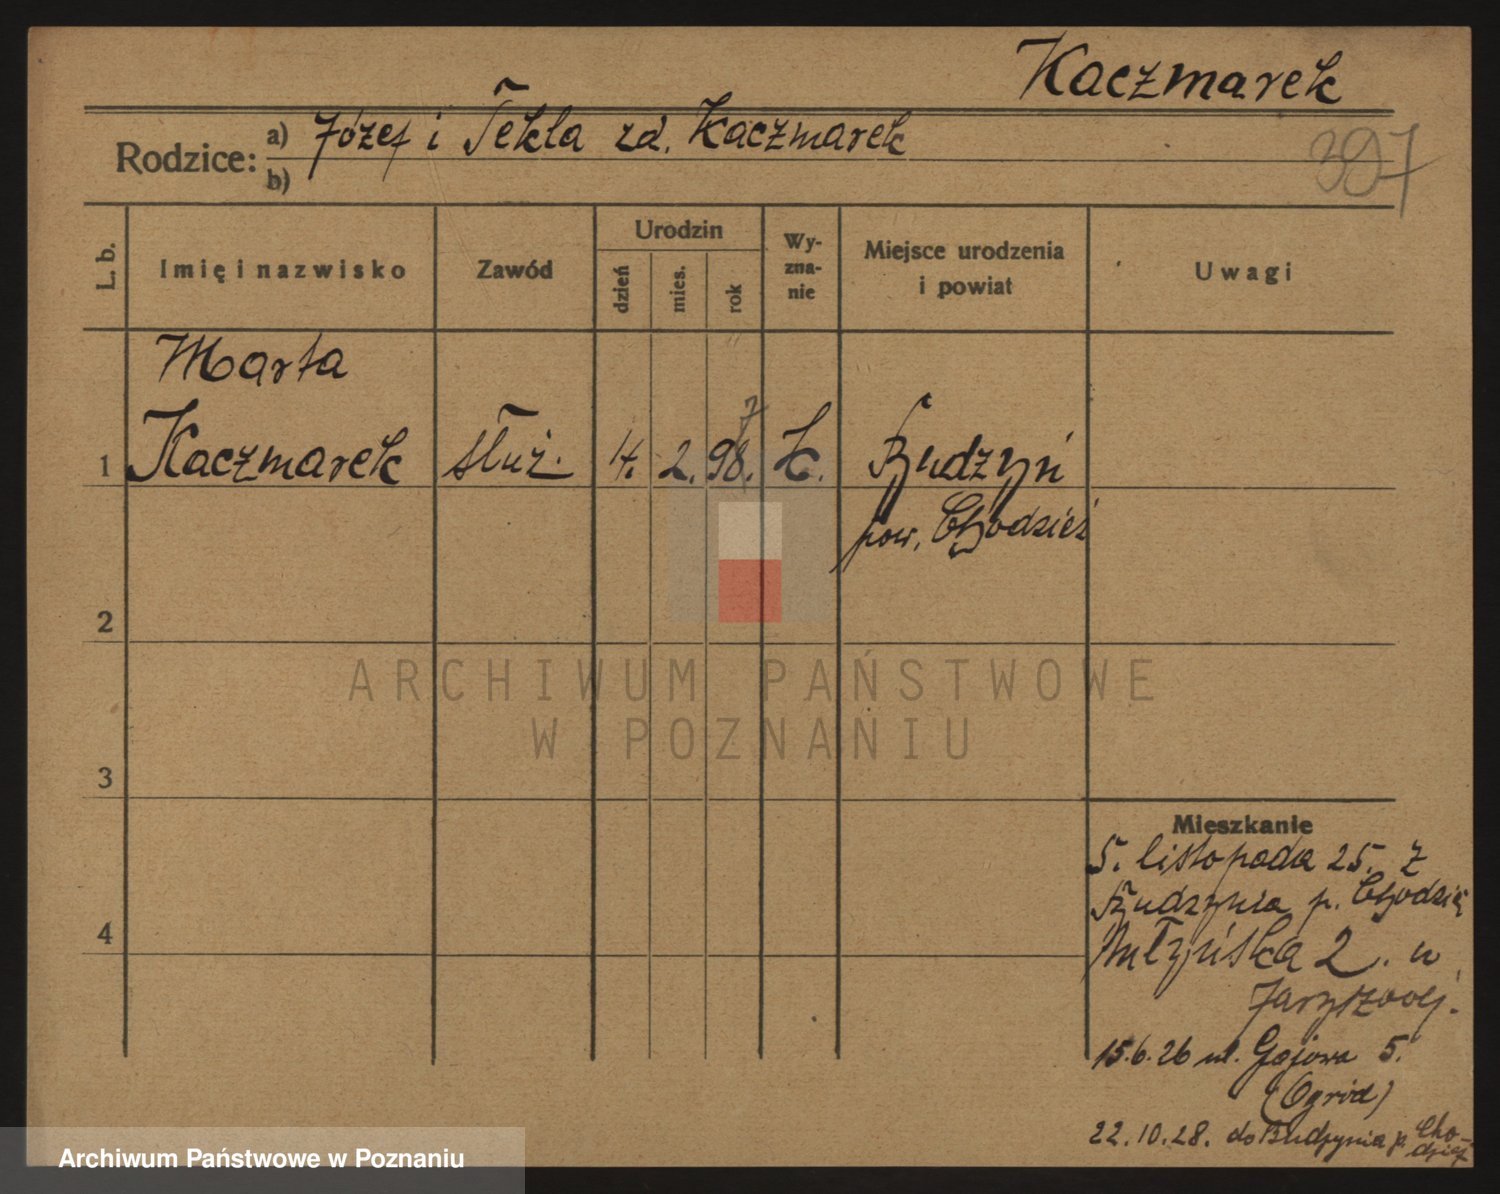 Kaczmarek
397
Rodzice: a) Józef i Tekla zd. Kaczmarek
b)
L. b.
Imię i nazwisko
Zawód
Urodzin
dzień
mies.
rok
Wy-
zna-
nie
Miejsce urodzenia
i powiat
Uwagi
Marta
1 Kaczmarek służ. 4. 2. 98. 7 K. Budzyń
pow. Chodzież
2
ARCHIWUM PAŃSTWOWE
W POZNANIU
3
Mieszkanie
5. listopada 25. z
Budzynia p. Chodzież
4
Młyńska 2. u
15.6.26 ul. Gajowa 5.
(Ogród)
22.10.28. do Budzynia p. Cho-
dzież
Archiwum Państwowe w Poznaniu